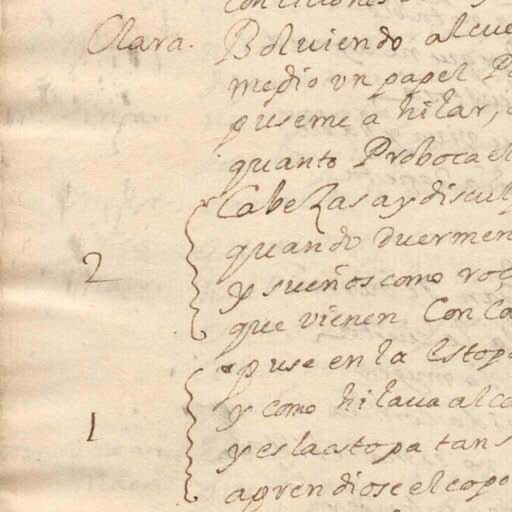 Clara. Bolviendo al cue
medio vn papel Po
puseme a hilar,
quanto Proboca el
Cabezas ay discul
2 quando duermen
y sueños como roc
que vienen Con Ca
puse en la Estopa
1 y como hilaua al co
y es la estopa tan s
aprendiose el copo